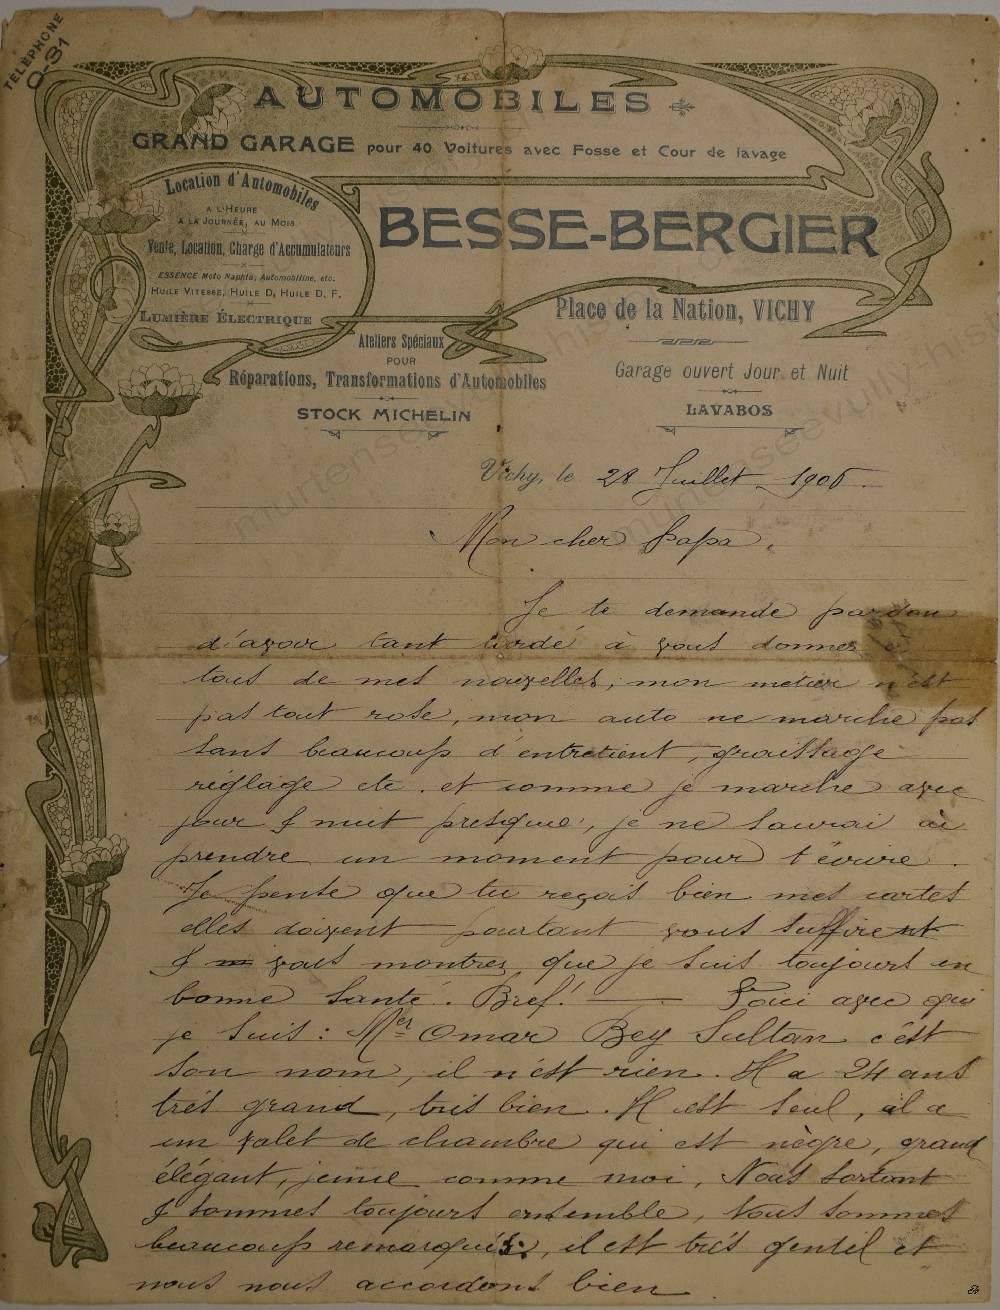 TÉLÉPHONE
0-31
AUTOMOBILES
GRAND GARAGE pour 40 Voitures avec Fosse et Cour de lavage
Location d'Automobiles
A L'HEURE
A LA JOURNÉE, AU MOIS
Vente, Location, Charge d'Accumulateurs
ESSENCE Moto Naphta, Automobiline, etc.
HUILE VITESSE, HUILE D, HUILE D. F.
LUMIÈRE ÉLECTRIQUE
BESSE-BERGIER
Place de la Nation, VICHY
Ateliers Spéciaux
POUR
Réparations, Transformations d'Automobiles
STOCK MICHELIN
Garage ouvert Jour et Nuit
LAVABOS
Vichy, le 28 Juillet 1906.
Mon cher Papa,
Je te demande pardon
d'avoir tant tardé à vous donner
tous de mes nouvelles, mon metier n'est
pas tout rose, mon auto ne marche pas
sans beaucoup d'entretient, graissage
réglage etc. et comme je marche avec
jour & nuit presque, je ne saurai où
prendre un moment pour t'écrire.
Je pense que tu reçois bien mes cartes
elles doivent pourtant vous suffire
& vous montrer que je suis toujours en
bonne santé. Bref! — Voici avec qui
je suis: Mer Omar Bey Sultan c'est
son nom, il n'est rien. Il a 24 ans
très grand, très bien. Il est seul, il a
un valet de chambre qui est nègre, grand
élégant, jeune comme moi, Nous sortont
& sommes toujours ensemble, Nous sommes
beaucoup remarqués, il est très gentil et
nous nous accordons bien